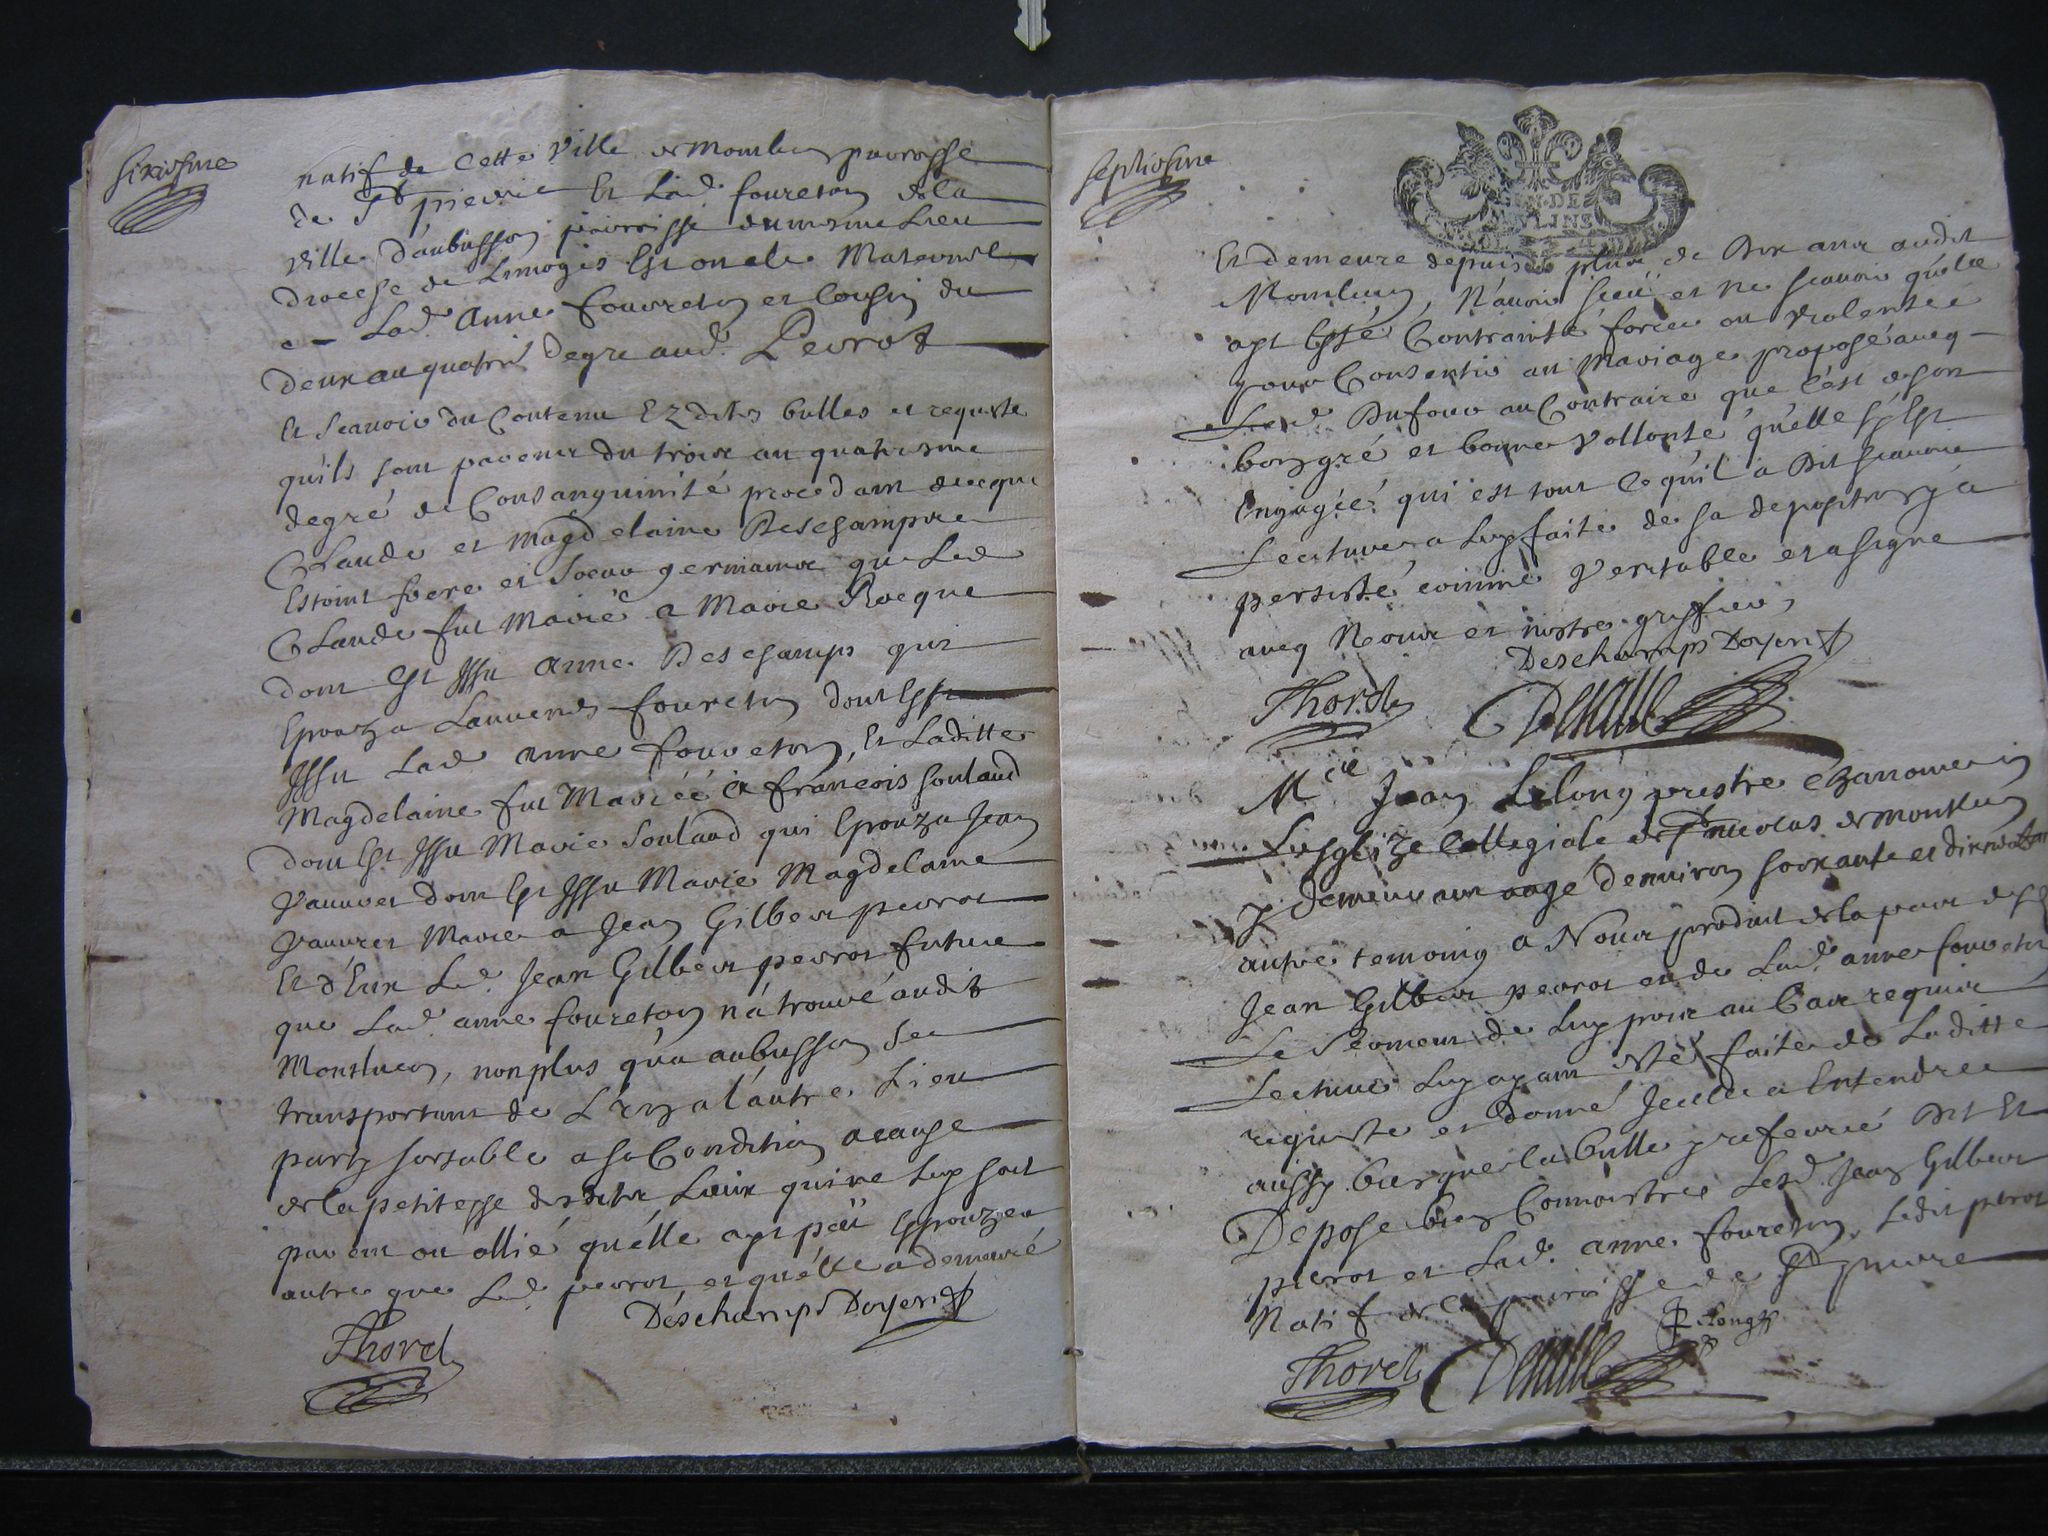 sixiesme
natif de cette Ville de Montlucon parroisse
de St pierre Et Lad. foureton de la
Ville d'aubusson parroisse du mesme Lieu
diocese de Limoges Est oncle Maternel
a Lad. Anne foureton et Cousin du
deux au quatrie degré aud. Perrot
Et scavoir du Contenu Ezdites bulles et requeste
quils sont parents du trois au quatriesme
degré de Consanguinité procedant de ce que
Claude et Magdelaine Deschamps
Estoint frere et soeur germains que Led
Claude fut Marié a Marie Rocque
dont Est Issu Anne Deschamps qui
Epouza Laurent foureton dont Est
Issu Lad anne foureton, Et Laditte
Magdelaine fut Mariée a françois Soulaud
dont Est Issu Marie Soulaud qui Epouza Jean
Vauvret dont Est Issu Marie Magdelaine
Vauvret Mariée a Jean Gilbert perrot
Et d'Eux Led. Jean Gilbert perrot future
que Lad anne foureton n'a trouvé audit
Montlucon, non plus qu'a aubusson se
transportant de L'un a l'autre Lieu
party sortable a sa Condition a cause
de la petitesse desdits Lieux qui ne Luy soit
parent ou allié qu'elle ayt peü Espouzer
autre que Led perrot, et qu'elle a demeuré
Deschamps Doyen
Thorel
septiesme
GEN. DE
MOLINS
Et demeure depuis plus de dix ans audit
Montlucon, N'avoir sceü et ne scavoir qu'elle
ayt Esté Contrainte forcée ou violentée
pour Consentir au Mariage proposé avecq
Led. Dufour au Contraire que c'est de son
bon gré et bonne vollonté qu'elle s'y Est
Engagée qui est tout ce qu'il a dit scavoir
Lecture a Luy faite de sa deposition y a
persisté comme veritable et a signé
avecq Nous et nostre greffier
Deschamps Doyen
Thorel
Mre Jean Lelong prestre chanoine en
Lesglize Collegialle de St nicolas de montlucon
y demeurant aagé denviron soixante et dix
autre temoing a Nous produit de la part desd
Jean Gilbert perrot et de Lad. anne foureton
Le Serment de Luy pris au Cas requis
Lecture Luy ayant Esté faite de Laditte
requeste et donné Icelle a Entendre
aussy bien que la bulle preferée Dit Et
Depose bien Connoistre Lesd. Jean Gilbert
perrot et Lad. anne foureton, Ledit perot
Natif de la parroisse de St pierre
Lelong
Thorel